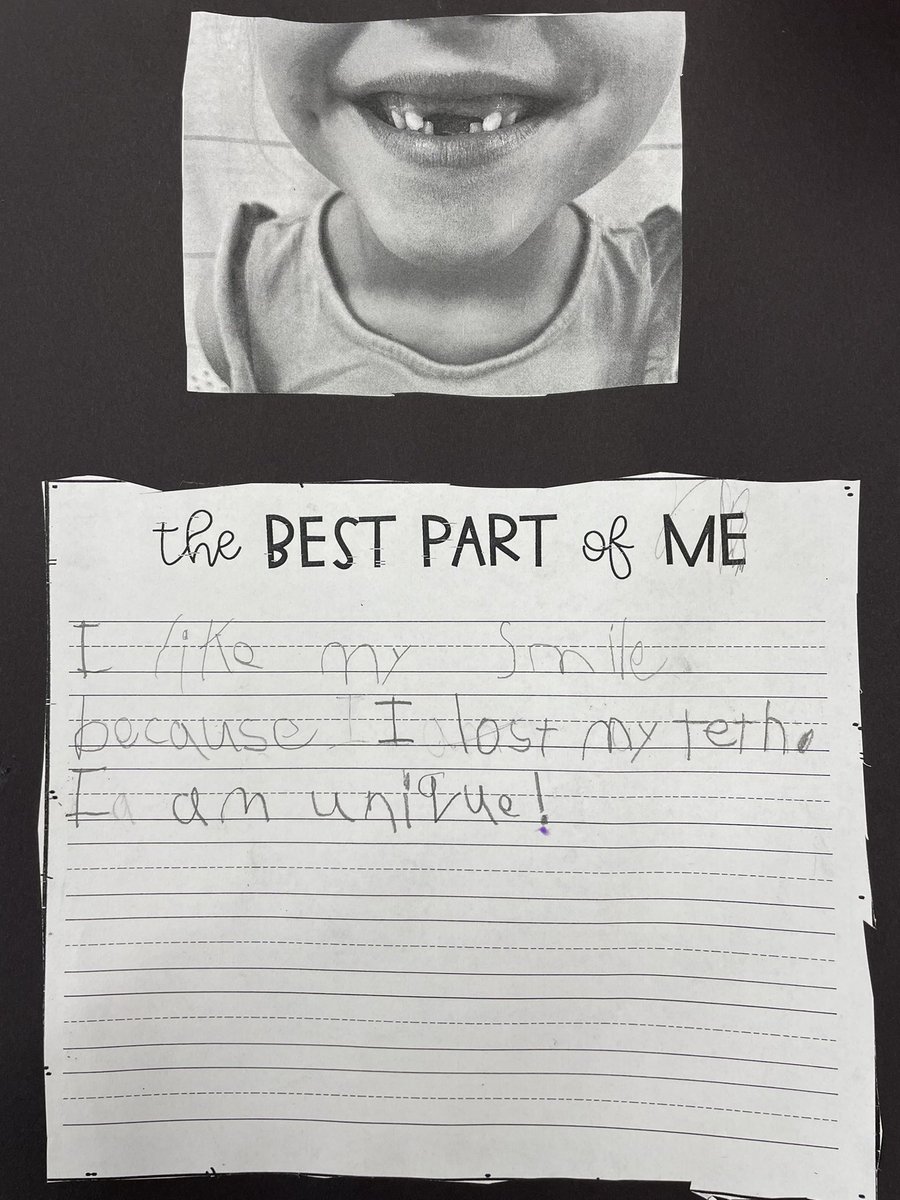 the BEST PART of ME
I like my Smile
because I lost my teth.
I am unique!